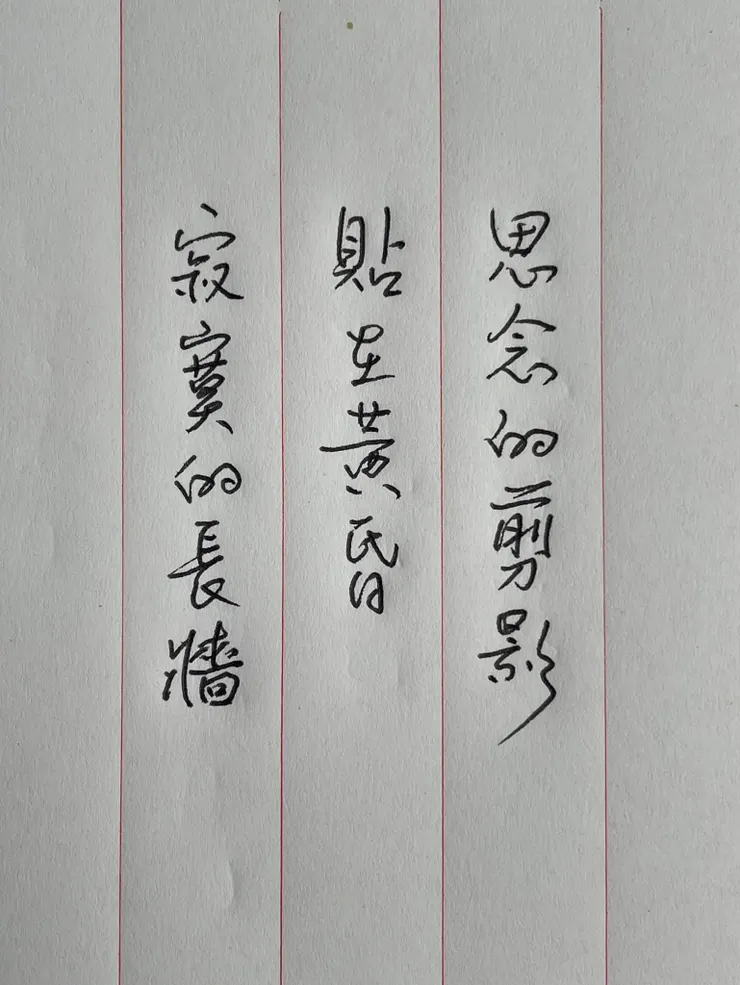 思念的剪影
貼在黃昏
寂寞的長牆